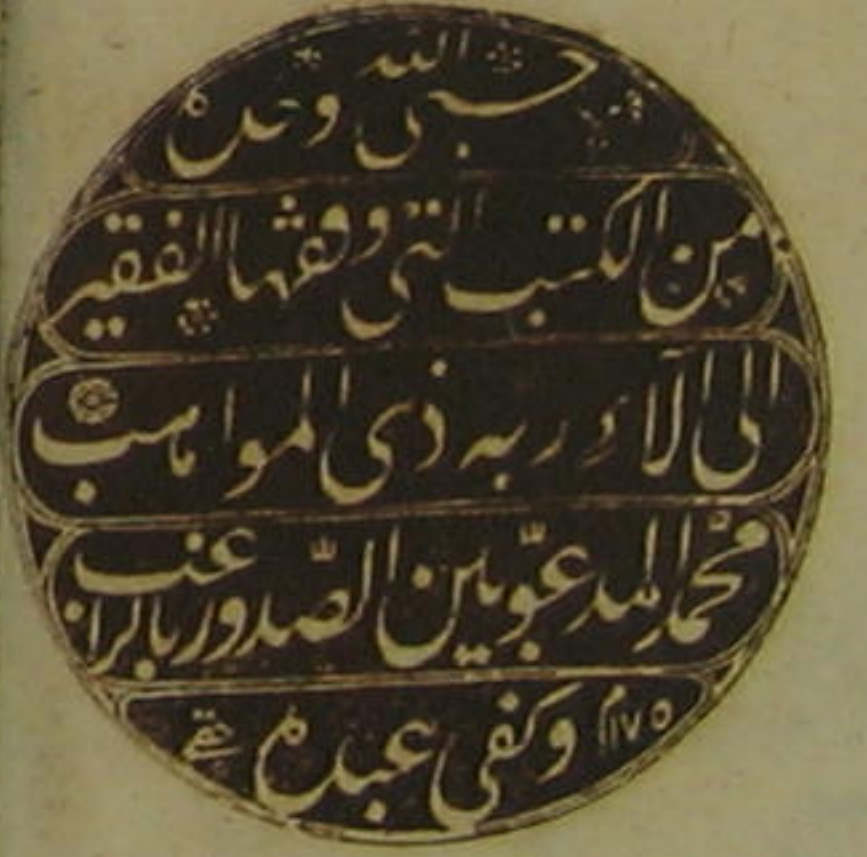 حسبي الله وحده
من الكتب التي وقفها الفقير
الى آلاء ربه ذي المواهب
محمد المدعوّ بين الصّدور بالراغب
١١٧٥ وكفى عبده